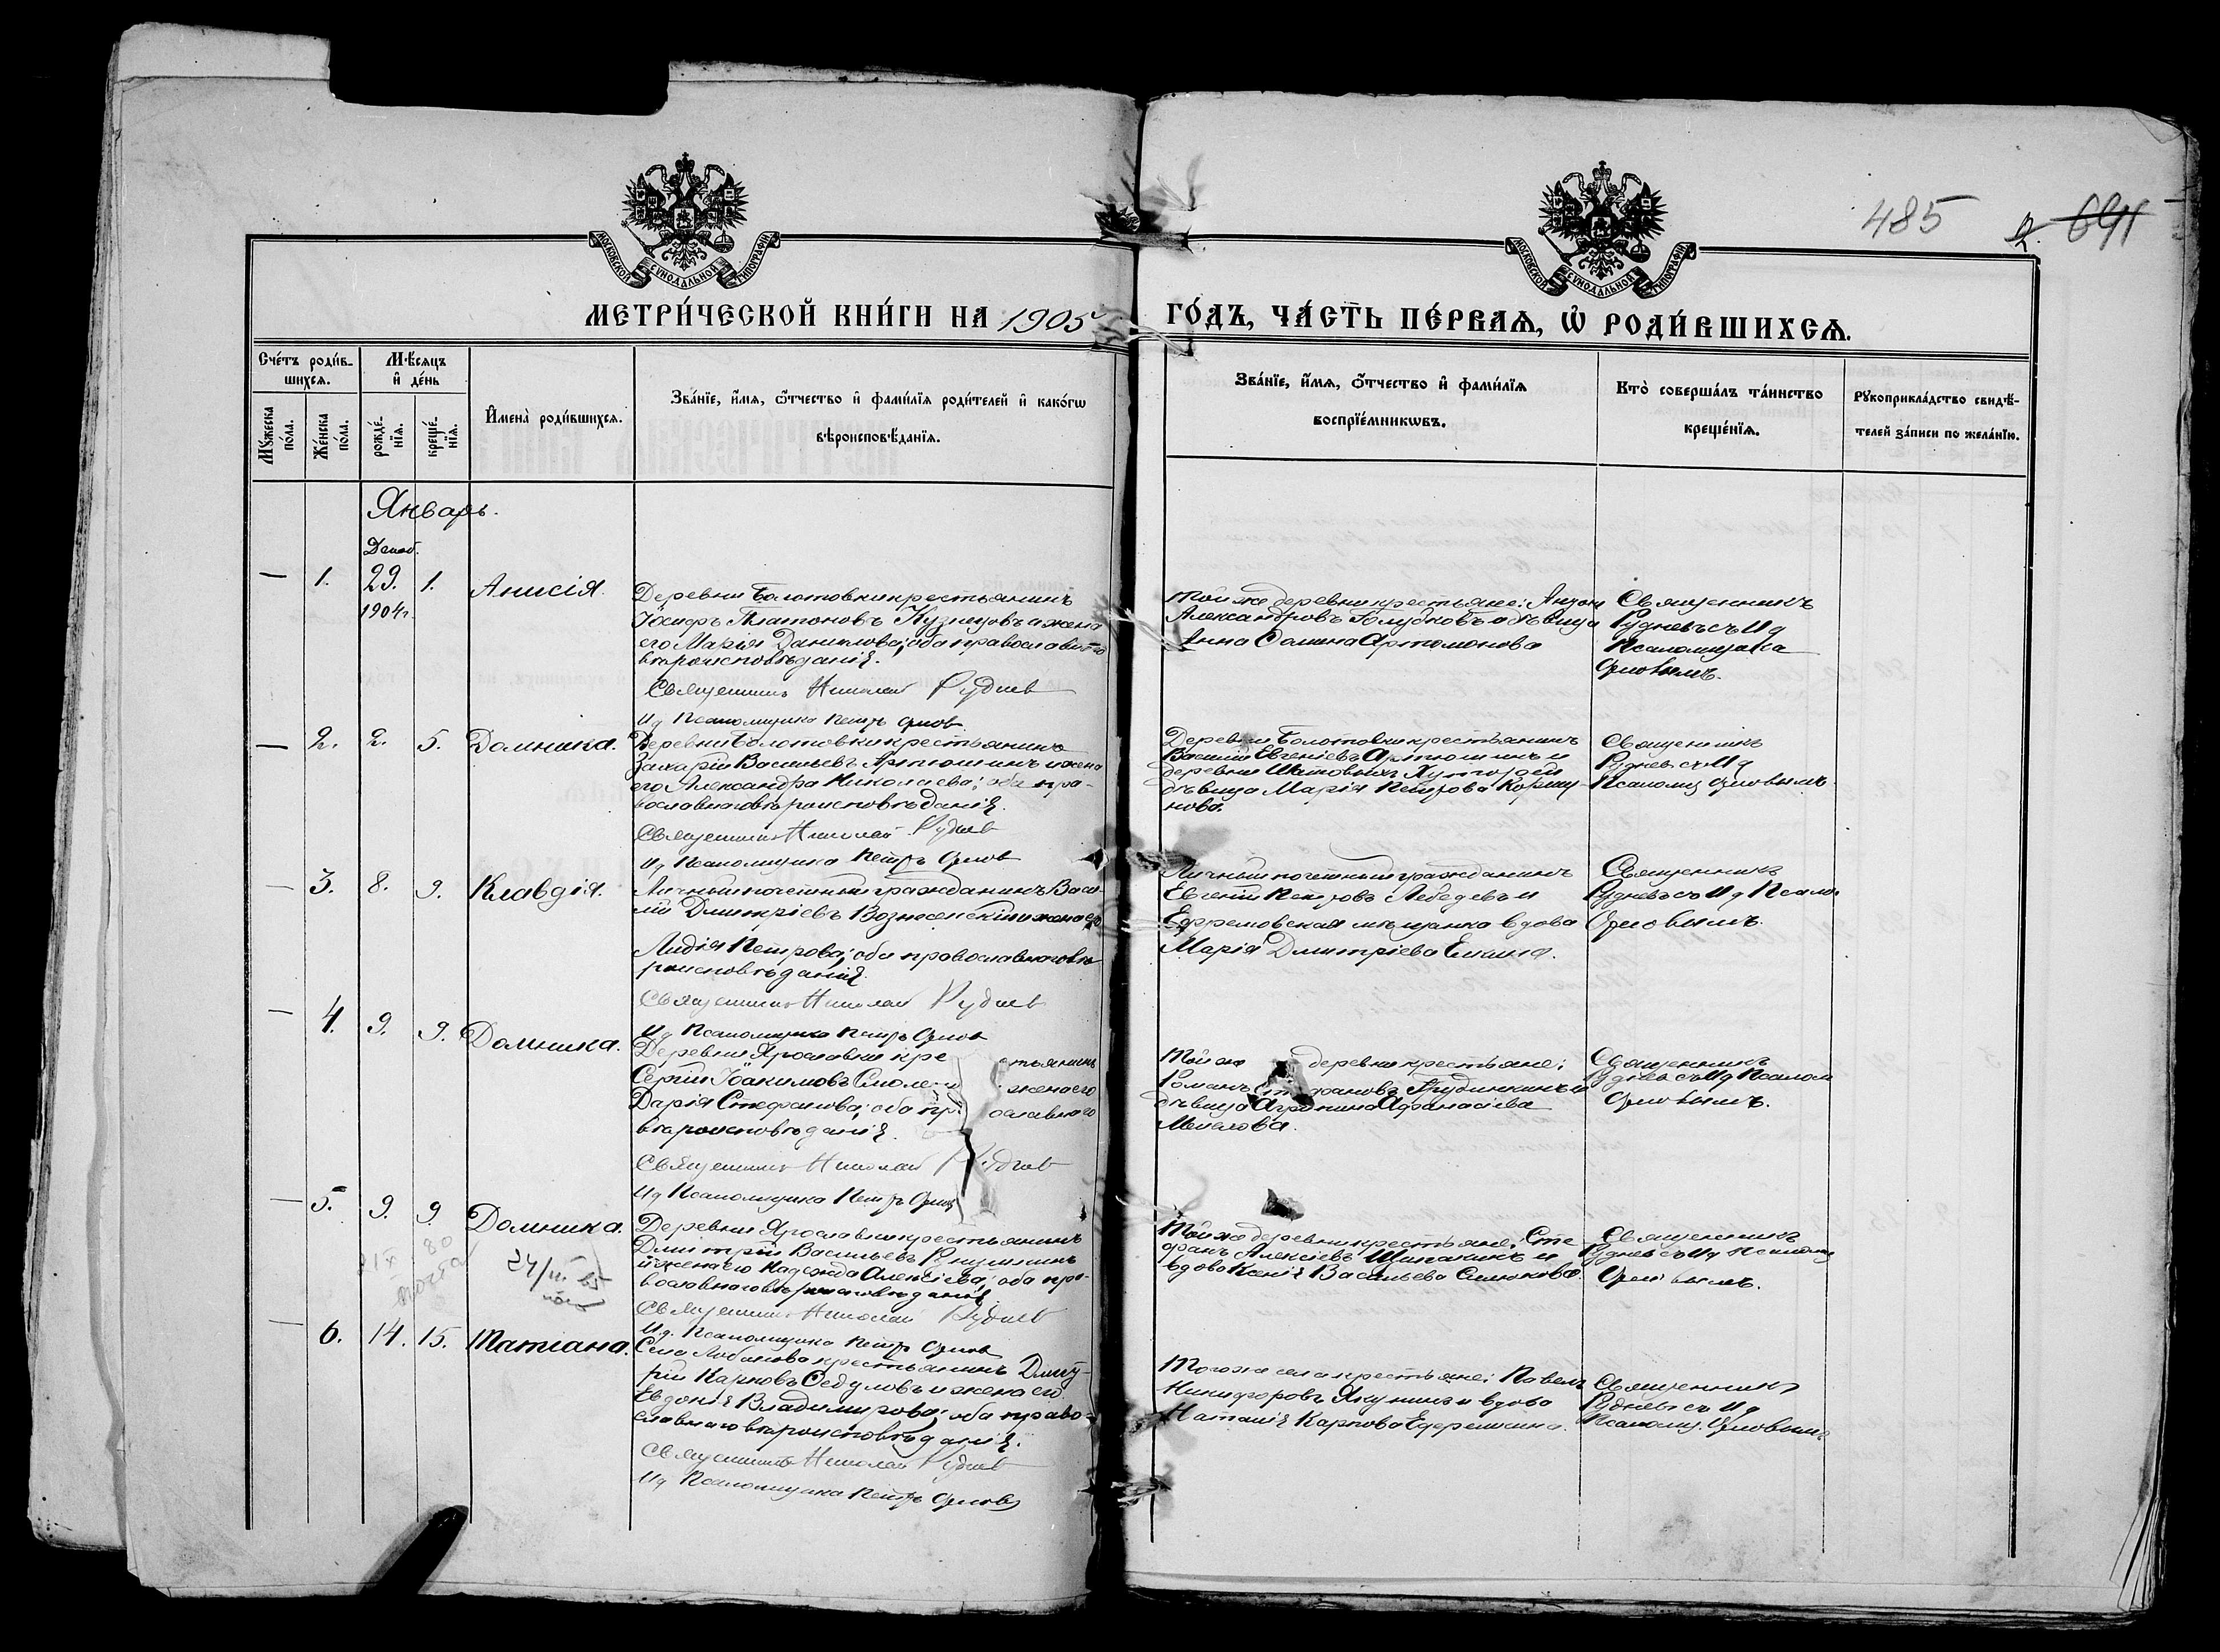 485
2. 691
МОСКОВСКОЙ СѴНОДАЛЬНОЙ ТИПОГРАФІИ
МОСКОВСКОЙ СѴНОДАЛЬНОЙ ТИПОГРАФІИ
МЕТРИ́ЧЕСКОЙ КНИ́ГИ НА 1905 ГО́ДЪ, ЧА́СТЬ ПЕ́РВАѦ, Ѡ҆ РОДИ́ВШИХСѦ.
Сче́тъ роди́в-
шихсѧ.
Мꙋжеска по́ла.
Же́нска по́ла.
М҄ѣсѧцъ
и҆ де́нь
рожде́-
нїѧ.
креще́-
нїѧ.
И҆мена̀ роди́вшихсѧ.
Зва́нїе, и҆́мѧ, ѻ҆́тчество и҆ фами́лїѧ роди́телей и҆ како́гѡ
вѣроисповѣ́данїѧ.
Зва́нїе, и҆́мѧ, ѻ҆́тчество и҆ фами́лїѧ
воспрїе́мникѡвъ.
Кто̀ соверша́лъ та́инство
креще́нїѧ.
Рꙋкоприкла́дство свидѣ́-
телей за́писи по жела́нїю.
Январь.
Декаб.
— 1. 29. 1. Анисія.
1904 г.
Деревни Болотовки крестьянинъ
Іосифъ Платоновъ Кузнецовъ и жена
его Марія Данилова; оба православнаго
вѣроисповѣданія.
Священникъ Николай Руднев
Ид Псаломщика Петръ Орлов
Той же деревни крестьяне: Антон
Александровъ Голубковъ и дѣвица
Анна Артамонова
Священникъ
Рудневъ съ Ид
Псаломщика
Орловымъ.
— 2. 2. 5. Домника.
Деревни Болотовки крестьянинъ
Захарій Васильевъ Артюшинъ и жена
его Александра Николаева; оба пра-
вославнаго вѣроисповѣданія.
Священникъ Николай Руднев
Ид Псаломщика Петръ Орлов
Деревни Болотовки крестьянинъ
Василій Евгеніевъ Артюшинъ и
деревни Хуторой
дѣвица Марія Петрова Коршу-
нова.
Священникъ
Рудневъ съ Ид
Псаломщ Орловымъ
— 3. 8. 9. Клавдія.
Личный почетный гражданинъ Васи-
лій Дмитріевъ Вознесенскій и жена его
Лидія Петрова; оба православнаго вѣ-
роисповѣданія.
Священникъ Николай Руднев
Ид Псаломщика Петръ Орлов
Личный почетный гражданинъ
Евгеній Петровъ Лебедевъ и
Ефремовская мѣщанка вдова
Марія Дмитріева Елкина.
Священникъ
Рудневъ съ Ид Псало.
Орловымъ.
— 4. 9. 9. Домника.
Деревни Ярославки кре стьянинъ
Сергій Іоакимовъ Смоле жена его
Дарія Стефанова; оба пр ославнаго
вѣроисповѣданія.
Священникъ Николай Руднев
Ид Псаломщика Петръ Орлов
Той же деревни крестьяне:
Романъ Стефановъ Трубинкинъ и
дѣвица Агрипина Афанасіева
Священникъ
Рудневъ съ Ид Псалом
Орловымъ.
— 5. 9. 9. Домника.
24/
Деревни Ярославки крестьянинъ
Дмитрій Васильевъ
и жена его Надежда Алексіева; оба пра-
вославнаго вѣроисповѣданія
Священникъ Николай Руднев
Ид. Псаломщика Петръ Орлов
Той же деревни крестьяне: Сте-
фанъ Алексіевъ и
вдова Ксенія Васильева
Священникъ
Рудневъ съ Ид Псаломщ
Орловымъ.
— 6. 14. 15. Татіана.
Села Лобанова крестьянинъ Дмит-
рій Карповъ Седуловъ и жена его
Евдокія Владимирова; оба право-
славнаго вѣроисповѣданія.
Священникъ Николай Руднев
Ид Псаломщика Петръ Орлов
Того же села крестьяне: Павелъ
Никифоровъ Якунинъ и вдова
Наталія Карпова Ефремкина.
Священникъ
Рудневъ съ Ид
Псаломщ. Орловымъ